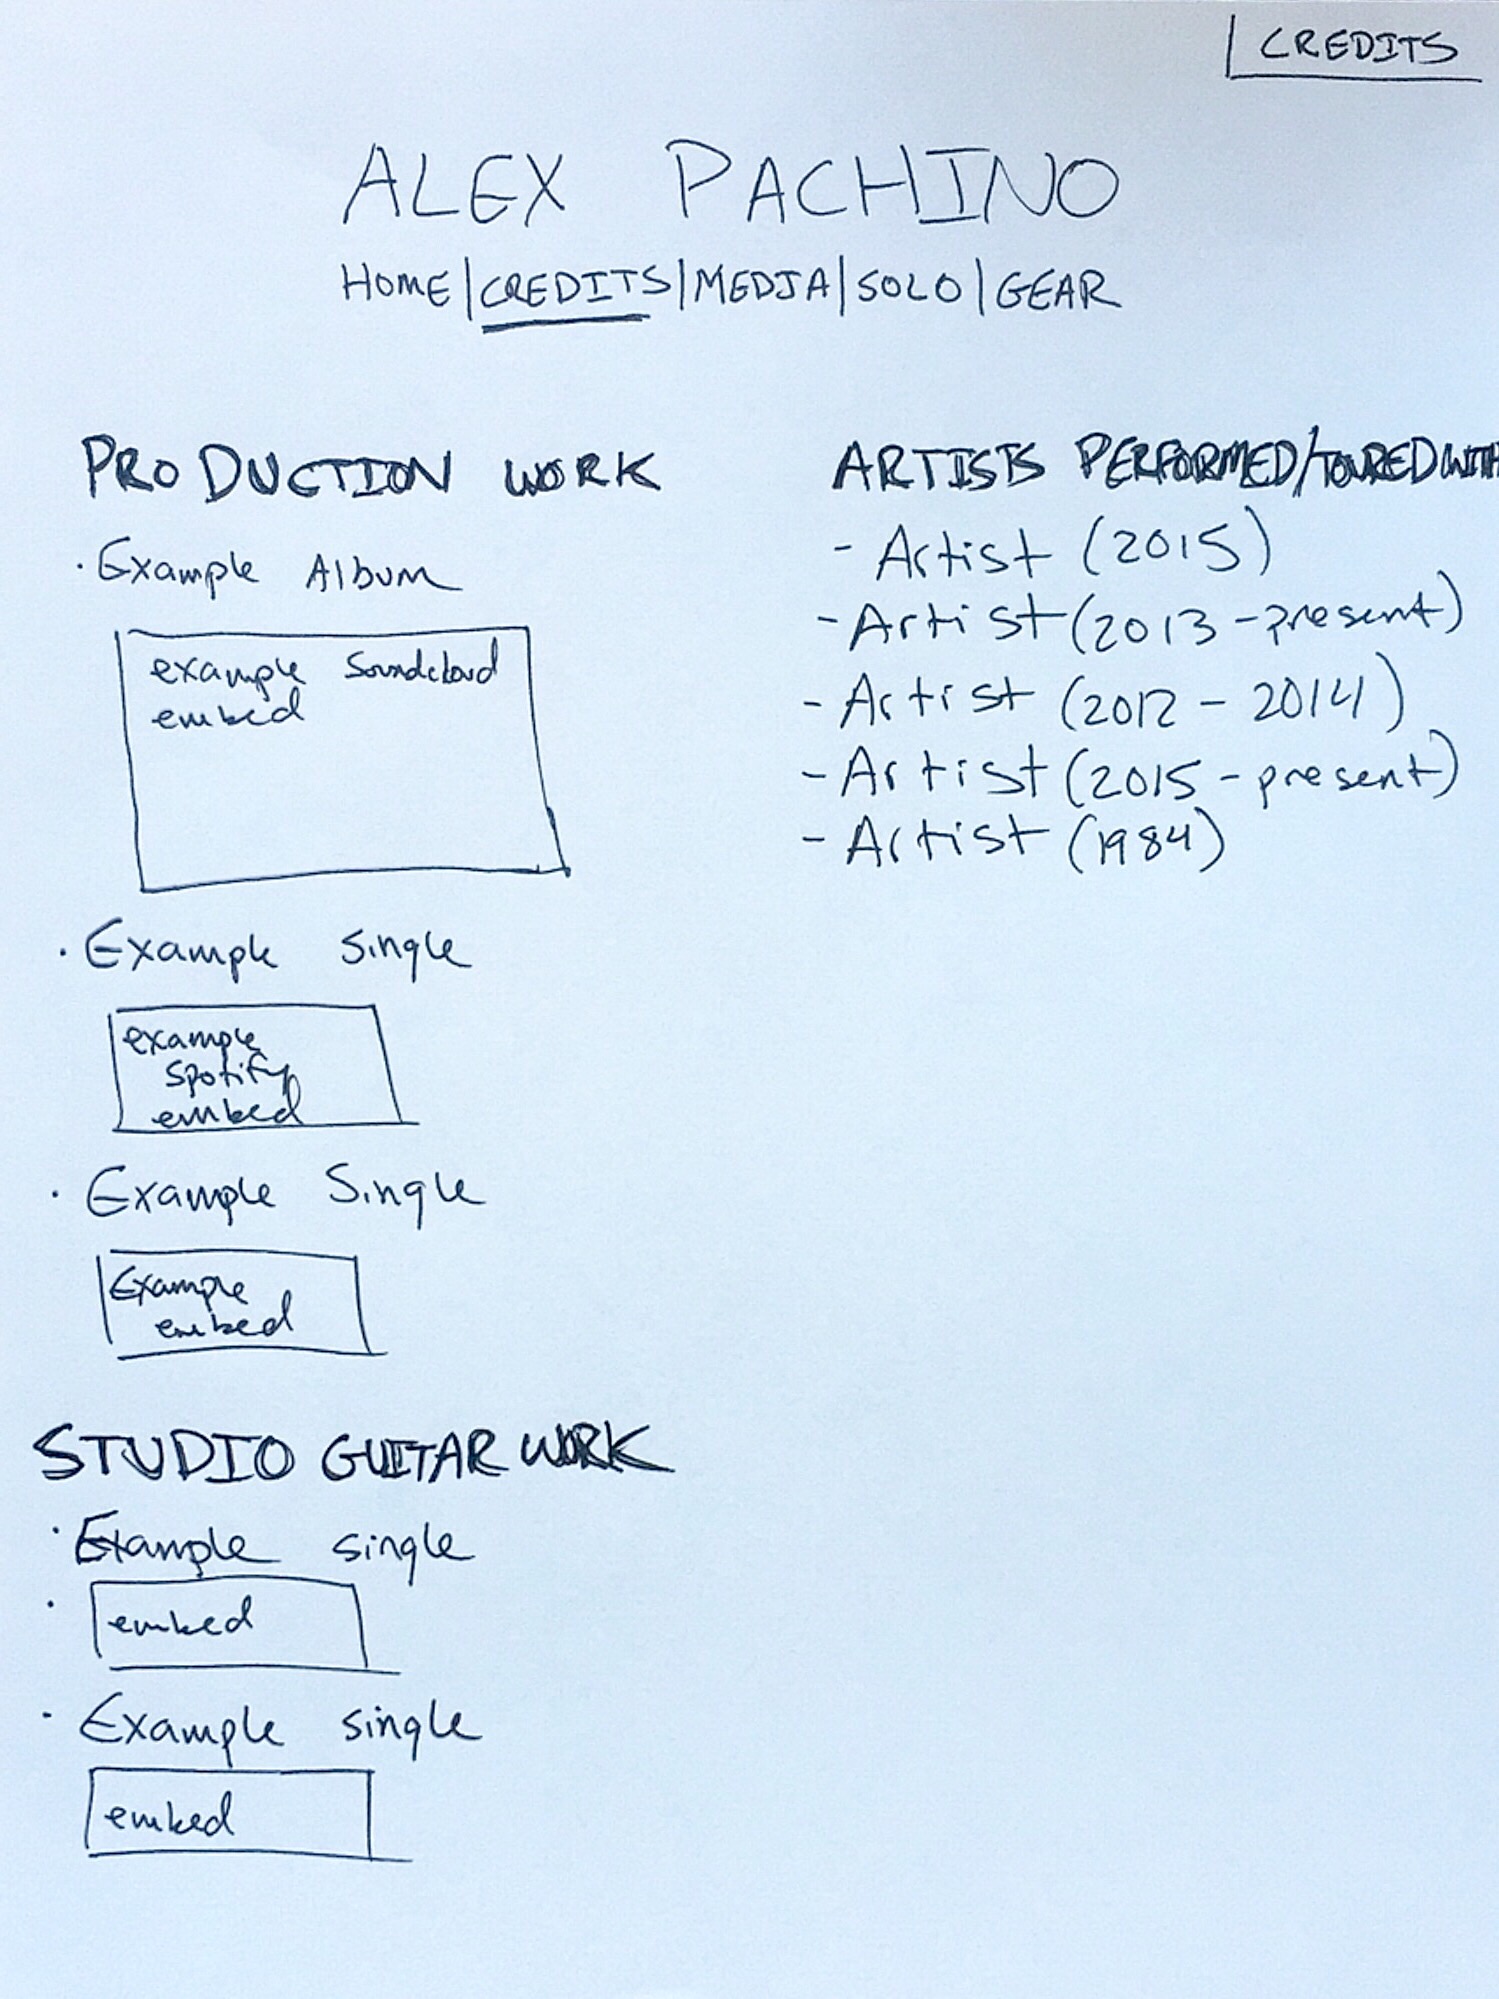 CREDITS
ALEX PACHINO
HOME|CREDITS|MEDIA|SOLO|GEAR
PRODUCTION WORK
· Example Album
example Soundcloud
embed
· Example Single
example
Spotify
embed
· Example Single
Example
embed
STUDIO GUITAR WORK
· Example single
· embed
· Example single
embed
ARTISTS PERFORMED/TOURED WITH
- Artist (2015)
- Artist (2013 - present)
- Artist (2012 - 2014)
- Artist (2015 - present)
- Artist (1984)